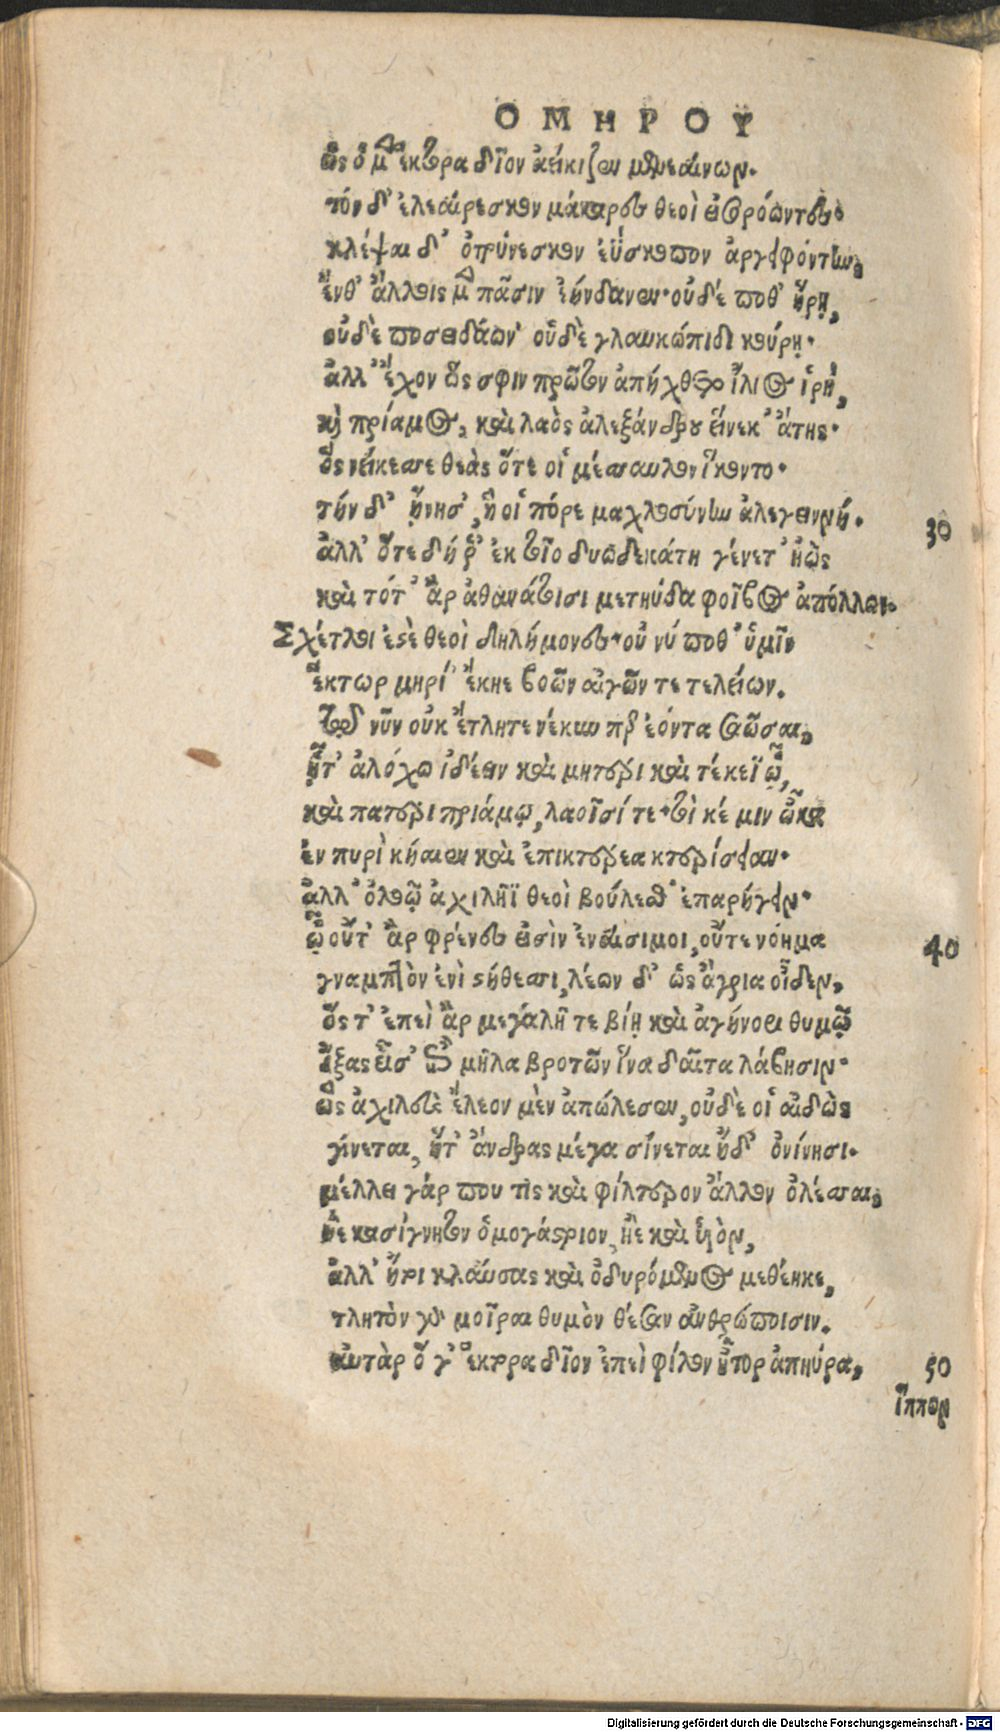 ΟΜΗΡΟΥ
ὣς ὁ μὲν ἕκτορα δῖον ἀείκιζεν μενεαίνων.
τόν δ' ἐλεαίρεσκον μάκαρες θεοὶ εἰσορόωντες·
κλέψαι δ' ὀτρύνεσκον ἐΰσκοπον ἀργειφόντην,
ἔνθ' ἄλλοις μὲν πᾶσιν ἑήνδανεν· οὐδέ ποθ' ἥρῃ,
οὐδὲ ποσειδάων' οὐδὲ γλαυκώπιδι κούρῃ·
ἀλλ' ἔχον ὥς σφιν πρῶτον ἀπήχθετο ἴλιος ἱρὴ,
καὶ πρίαμος, καὶ λαὸς ἀλεξάνδρου εἵνεκ' ἄτης·
ὃς νείκεσσε θεὰς ὅτε οἱ μέσσαυλον ἵκοντο·
τήν δ' ᾔνησ', ἥ οἱ πόρε μαχλοσύνην ἀλεγεινήν.
ἀλλ' ὅτε δή ῥ' ἐκ τοῖο δυωδεκάτη γένετ' ἠὼς
30
καὶ τότ' ἂρ ἀθανάτοισι μετηύδα φοῖβος ἀπόλλων.
Σχέτλιοι ἐστὲ θεοὶ δηλήμονες· οὔ νύ ποθ' ὑμῖν
ἕκτωρ μηρί' ἔκηε βοῶν αἰγῶν τε τελείων.
τὸν νῦν οὐκ ἔτλητε νέκυν περ ἐόντα σαῶσαι,
ᾗτ' ἀλόχῳ ἰδέειν καὶ μητέρι καὶ τέκεϊ ᾧ,
καὶ πατέρι πριάμῳ, λαοῖσί τε· τοὶ κέ μιν ὦκα
ἐν πυρὶ κήαιεν καὶ ἐπικτέρεα κτερίσειαν·
ἀλλ' ὀλοῷ ἀχιλῆϊ θεοὶ βούλεσθ' ἐπαρήγειν·
ᾧ οὔτ' ἂρ φρένες εἰσὶν ἐναίσιμοι, οὔτε νόημα
40
γναμπτὸν ἐνὶ στήθεσσι, λέων δ' ὣς ἄγρια οἶδεν,
ὅς τ' ἐπεὶ ἂρ μεγάλῃ τε βίῃ καὶ ἀγήνορι θυμῷ
εἴξας εἶσ' ἐπὶ μῆλα βροτῶν ἵνα δαῖτα λάβησιν·
ὣς ἀχιλεὺς ἔλεον μὲν ἀπώλεσεν, οὐδὲ οἱ αἰδὼς
γίνεται, ἥτ' ἄνδρας μέγα σίνεται ἠδ' ὀνίνησι.
μέλλει γάρ που τὶς καὶ φίλτερον ἄλλον ὀλέσσαι,
ἠὲ κασίγνητον ὁμογάστριον, ἠὲ καὶ υἱὸν,
ἀλλ' ἤτοι κλαύσας καὶ ὀδυρόμενος μεθέηκε,
τλητὸν γὰρ μοῖραι θυμὸν θέσαν ἀνθρώποισιν.
αὐτὰρ ὅ γ' ἕκτορα δῖον ἐπεὶ φίλον ἦτορ ἀπηύρα,
50
ἵππων